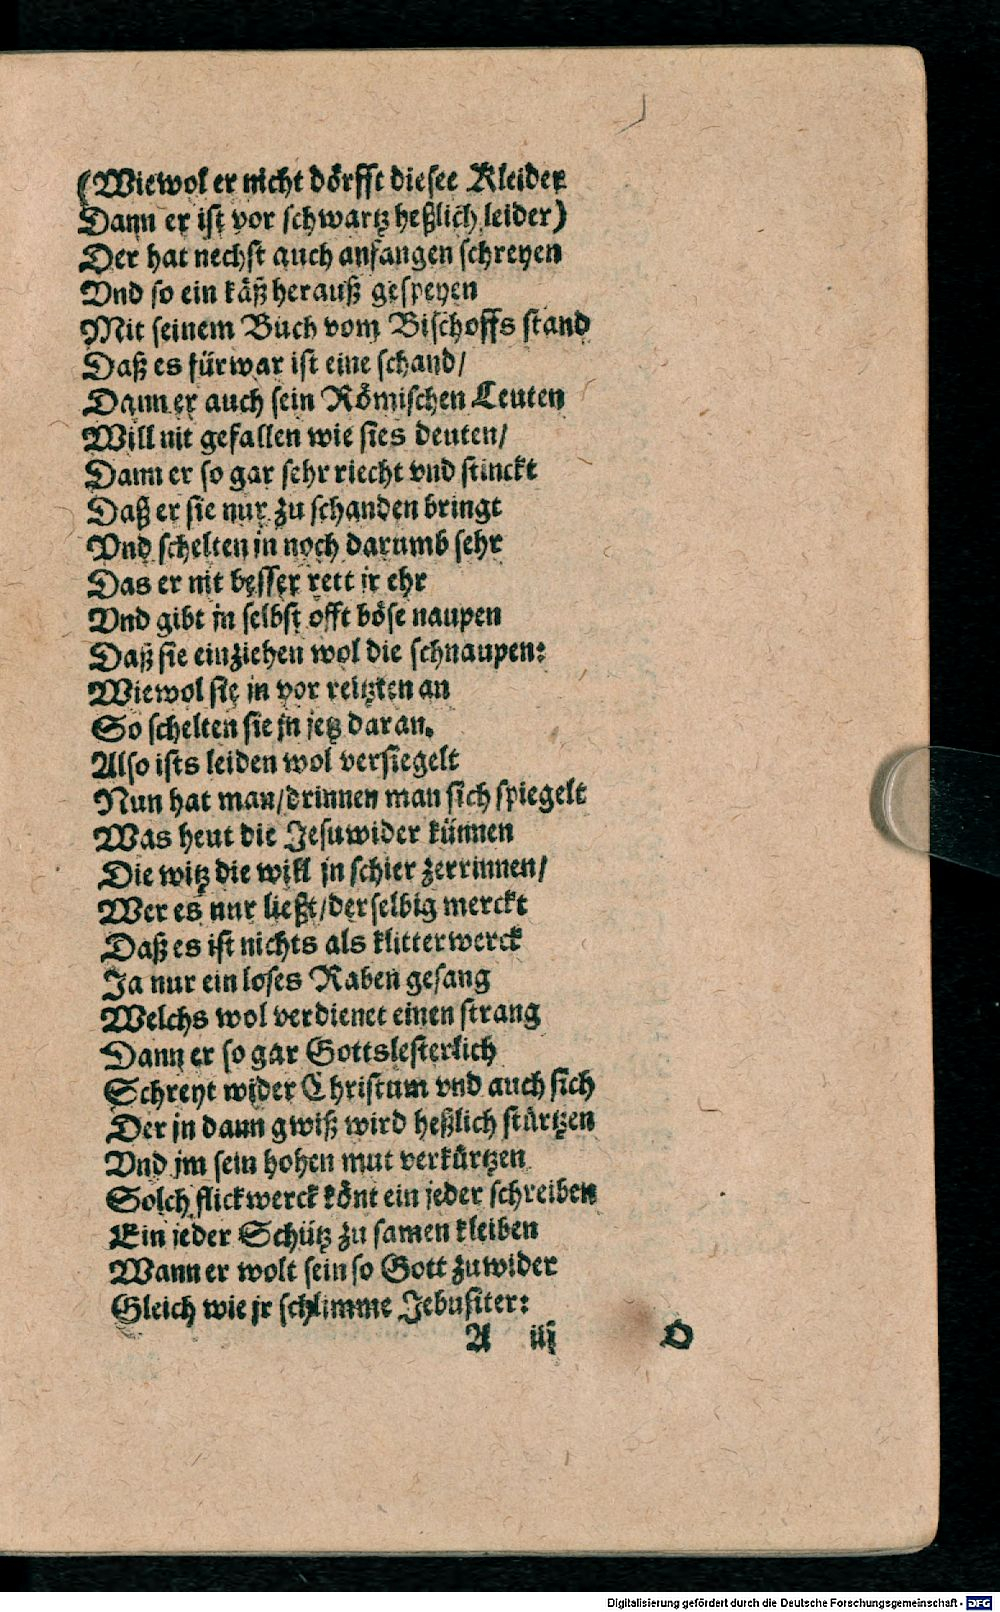 (Wiewol er nicht dörfft diesee Kleider
Dann er ist vor schwartz heßlich leider)
Der hat nechst auch anfangen schreyen
Vnd so ein käß herauß gespeyen
Mit seinem Buch vom Bischoffs stand
Daß es fürwar ist eine schand/
Dann er auch sein Römischen Leuten
Will nit gefallen wie sies deuten/
Dann er so gar sehr riecht vnd stinckt
Daß er sie nur zu schanden bringt
Vnd schelten jn noch darumb sehr
Das er nit besser rett jr ehr
Vnd gibt jn selbst offt böse naupen
Daß sie einziehen wol die schnaupen:
Wiewol sie jn vor reitzten an
So schelten sie jn jetz daran.
Also ists leiden wol versiegelt
Nun hat man/drinnen man sich spiegelt
Was heut die Jesuwider künnen
Die witz die will jn schier zerrinnen/
Wer es nur ließt/derselbig merckt
Daß es ist nichts als klitterwerck
Ja nur ein loses Raben gesang
Welchs wol verdienet einen strang
Dann er so gar Gottslesterlich
Schreyt wider Christum vnd auch sich
Der jn dann gwiß wird heßlich stürtzen
Vnd jm sein hohen mut verkürtzen
Solch flickwerck könt ein jeder schreiben
Ein jeder Schütz zu samen kleiben
Wann er wolt sein so Gott zuwider
Gleich wie jr schlimme Jebusiter:
A iij O
Digitalisierung gefördert durch die Deutsche Forschungsgemeinschaft - DFG